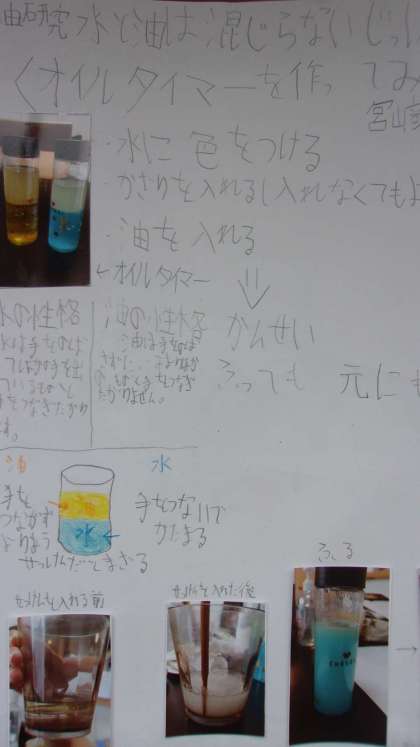 由研究 水と油は混じらないじっ
くオイルタイマーを作っ てみ
宮崎
・水に色をつける
・かざりを入れる(入れなくてもよ
・油を入れる
←オイルタイマー
水の性格
水は手をのば
手を出
ている
をつなぎたがり
ます。
油の性格
油は手をのば
手をつなぎ
たがりません。
かんせい
ふっても 元にも
油
水
手を
つながず
水
手をつないで
かたまる
せっけんだとまざる
せっけんを入れる前
せっけんを入れた後
ふる
→